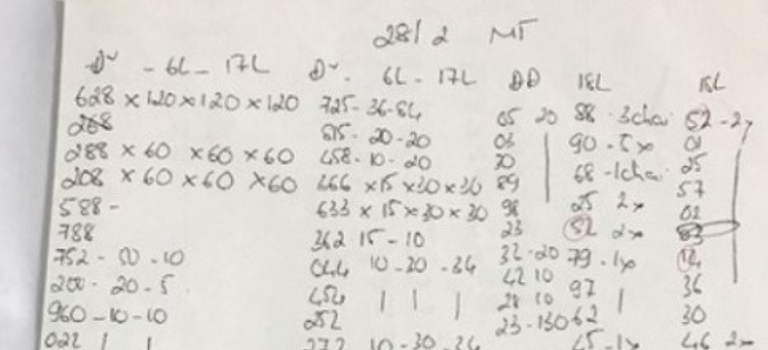 28/2 MT
Dv - 6L - 17L Dv. 6L - 17L DD 18L 18L
628 x 120 x 120 x 120 725 - 36 - 84 05 20 88 - 3 52 - 2
268 815 - 20 - 20 03 90 - 5x 01
288 x 60 x 60 x 60 458 - 10 - 20 20 68 - 1 25
208 x 60 x 60 x 60 666 x 15 x 30 x 30 89 25 2x 57
588 - 633 x 15 x 30 x 30 98 52 2x 02
788 362 15 - 10 23 79 - 1x 83
752 - 50 - 10 044 10 - 20 - 34 32 - 20 97 12
200 - 20 - 5 454 42 10 36
960 - 10 - 10 252 28 10 62 30
022 272 10 - 30 - 34 23 - 130 45 - 1x 46 2x